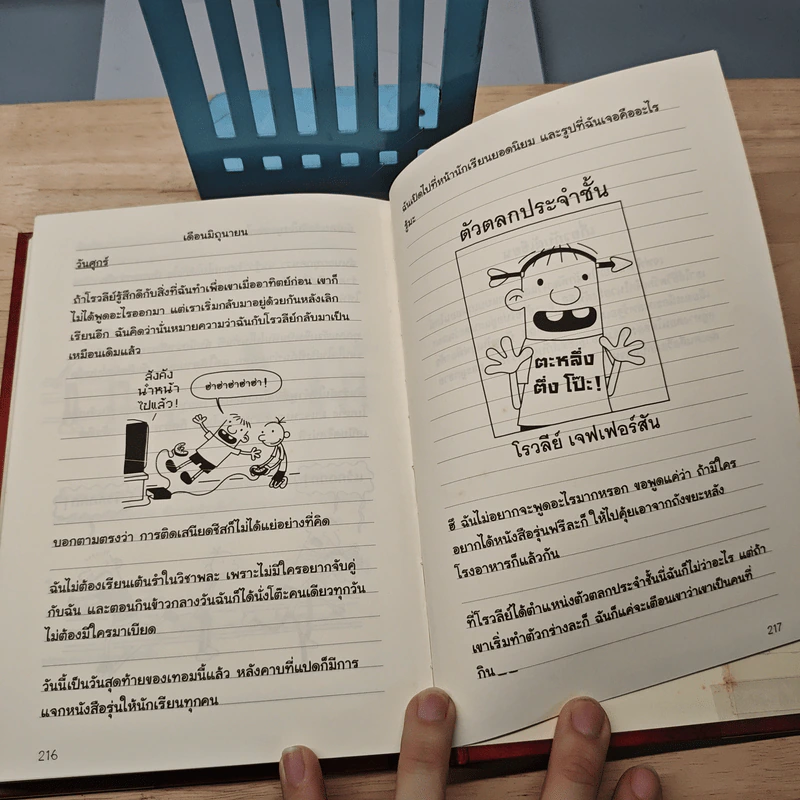 เดือนมิถุนายน
วันศุกร์
ถ้าโรวลีย์รู้สึกดีกับสิ่งที่ฉันทำเพื่อเขาเมื่ออาทิตย์ก่อน เขาก็
ไม่ได้พูดอะไรออกมา แต่เราเริ่มกลับมาอยู่ด้วยกันหลังเลิก
เรียนอีก ฉันคิดว่านั่นหมายความว่าฉันกับโรวลีย์กลับมาเป็น
เหมือนเดิมแล้ว
สังคัง
นำหน้า
ไปแล้ว!
ฮ่าฮ่าฮ่าฮ่าฮ่า!
บอกตามตรงว่า การติดเสนียดชีสก็ไม่ได้แย่อย่างที่คิด
ฉันไม่ต้องเรียนเต้นรำในวิชาพละ เพราะไม่มีใครอยากจับคู่
กับฉัน และตอนกินข้าวกลางวันฉันก็ได้นั่งโต๊ะคนเดียวทุกวัน
ไม่ต้องมีใครมาเบียด
วันนี้เป็นวันสุดท้ายของเทอมนี้แล้ว หลังคาบที่แปดก็มีการ
แจกหนังสือรุ่นให้นักเรียนทุกคน
216
ฉันเปิดไปที่หน้านักเรียนยอดนิยม และรูปที่ฉันเจอคืออะไร
รู้มะ
ตัวตลกประจำชั้น
ตะหลึ่ง
ตึ่ง โป๊ะ!
โรวลีย์ เจฟเฟอร์สัน
ฮึ ฉันไม่อยากจะพูดอะไรมากหรอก ขอพูดแค่ว่า ถ้ามีใคร
อยากได้หนังสือรุ่นฟรีละก็ ให้ไปคุ้ยเอาจากถังขยะหลัง
โรงอาหารก็แล้วกัน
ที่โรวลีย์ได้ตำแหน่งตัวตลกประจำชั้นนี่ฉันก็ไม่ว่าอะไร แต่ถ้า
เขาเริ่มทำตัวกร่างละก็ ฉันก็แค่จะเตือนเขาว่าเขาเป็นคนที่
กิน _ _
217